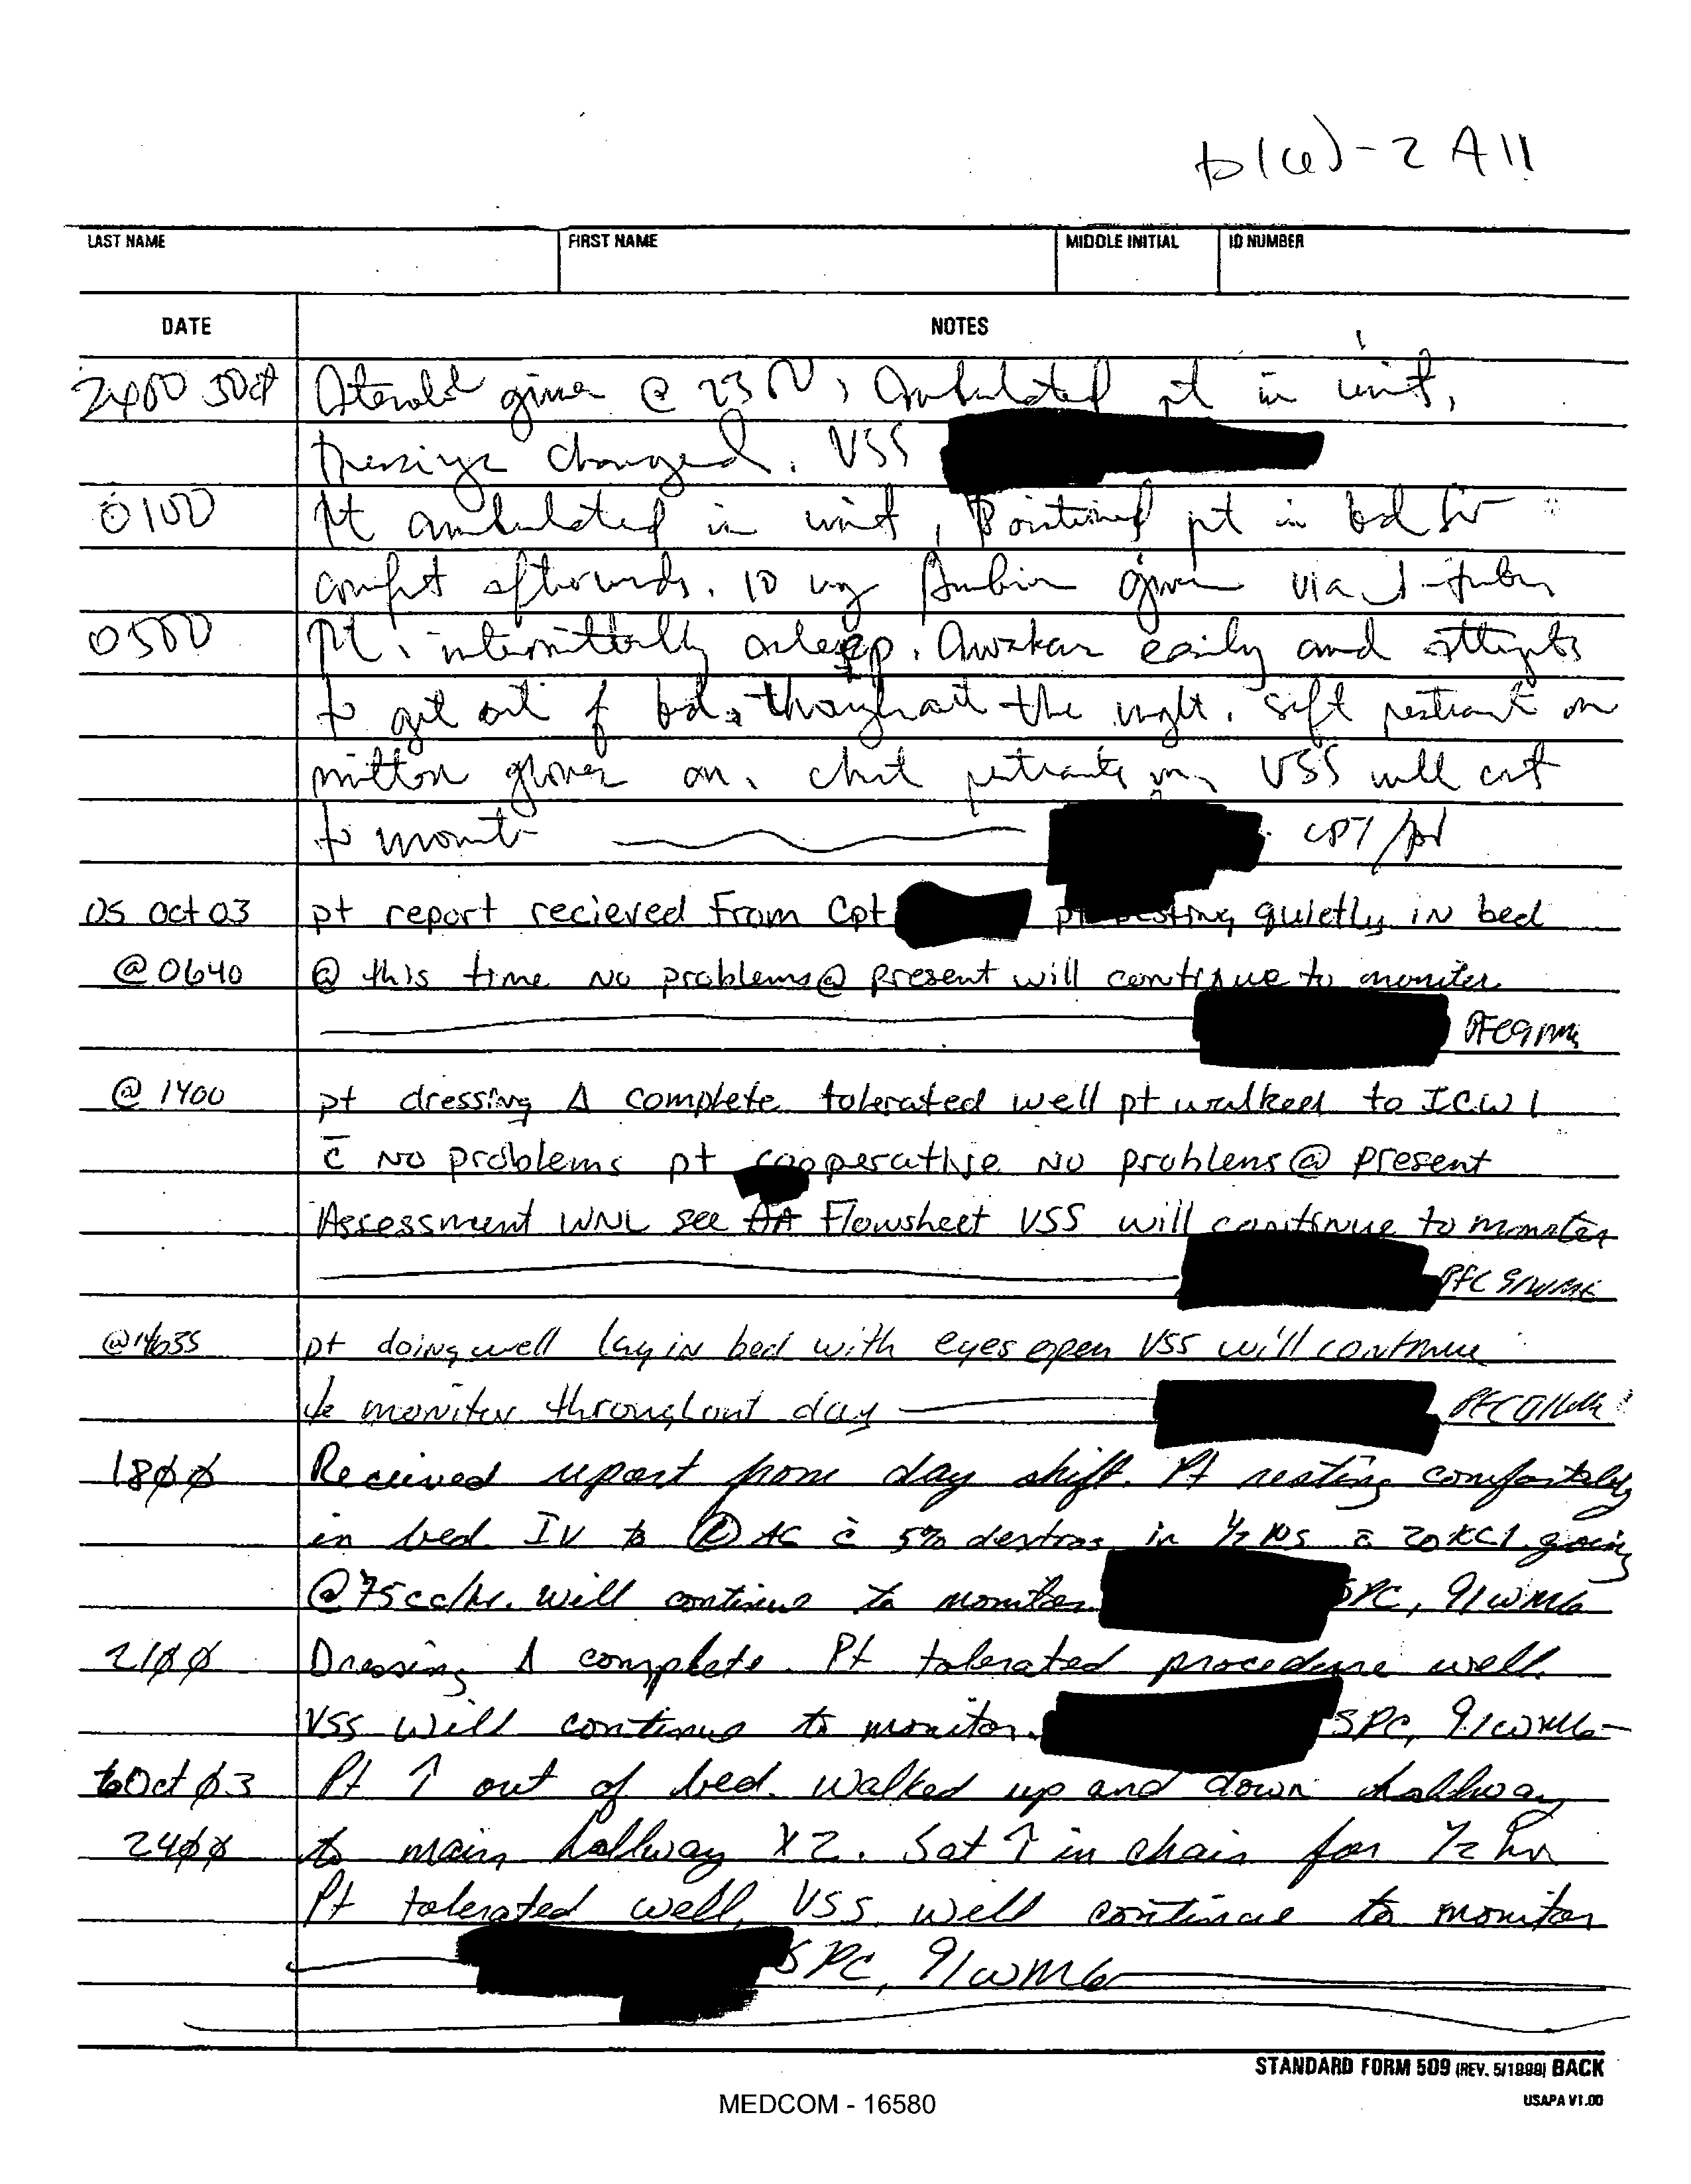 b(6)-2 All
LAST NAME FIRST NAME MIDDLE INITIAL ID NUMBER
DATE NOTES
2400 given @ 2300, Ambulated pt in unit,
changed. VSS
0100 Pt ambulated in unit, Positioned pt in bed for
comfort afterwards. 10 mg Ambien given via J-tube
0500 Pt. intermittently asleep. Awakes easily and attempts
to get out of bed throughout the night. soft restraint on
mitton gloves on. chest restraints on, VSS will cont
to monit CPT/
05 Oct 03 pt report recieved From Cpt quietly in bed
@ 0640 @ this time No problems @ present will continue to moniter
PFC
@ 1400 pt dressing Δ complete tolerated well pt walked to ICW 1
c̄ No problems pt cooperative No problems @ present
Assessment WNL see Flowsheet VSS will continue to moniter
PFC
pt doing well lay in bed with eyes open VSS will continue
to monitor throughout day PFC
1800 Received report from day shift. Pt resting comfortably
in bed. IV to AC c̄ 5% dextros in 1/2 NS c̄ 20 KCl going
@ 75cc/hr. will continue to monitor. SPC, 91WM6
2100 Dressing Δ complete. Pt tolerated procedure well.
VSS will continue to monitor. SPC, 91WM6
6 Oct 03 Pt ↑ out of bed. walked up and down hallway
2400 to main hallway X2. Sat ↑ in chair for 1/2 hr
Pt tolerated well, VSS. will continue to monitor
SPC, 91WM6
STANDARD FORM 509 (REV. 5/1999) BACK
USAPA V1.00
MEDCOM - 16580